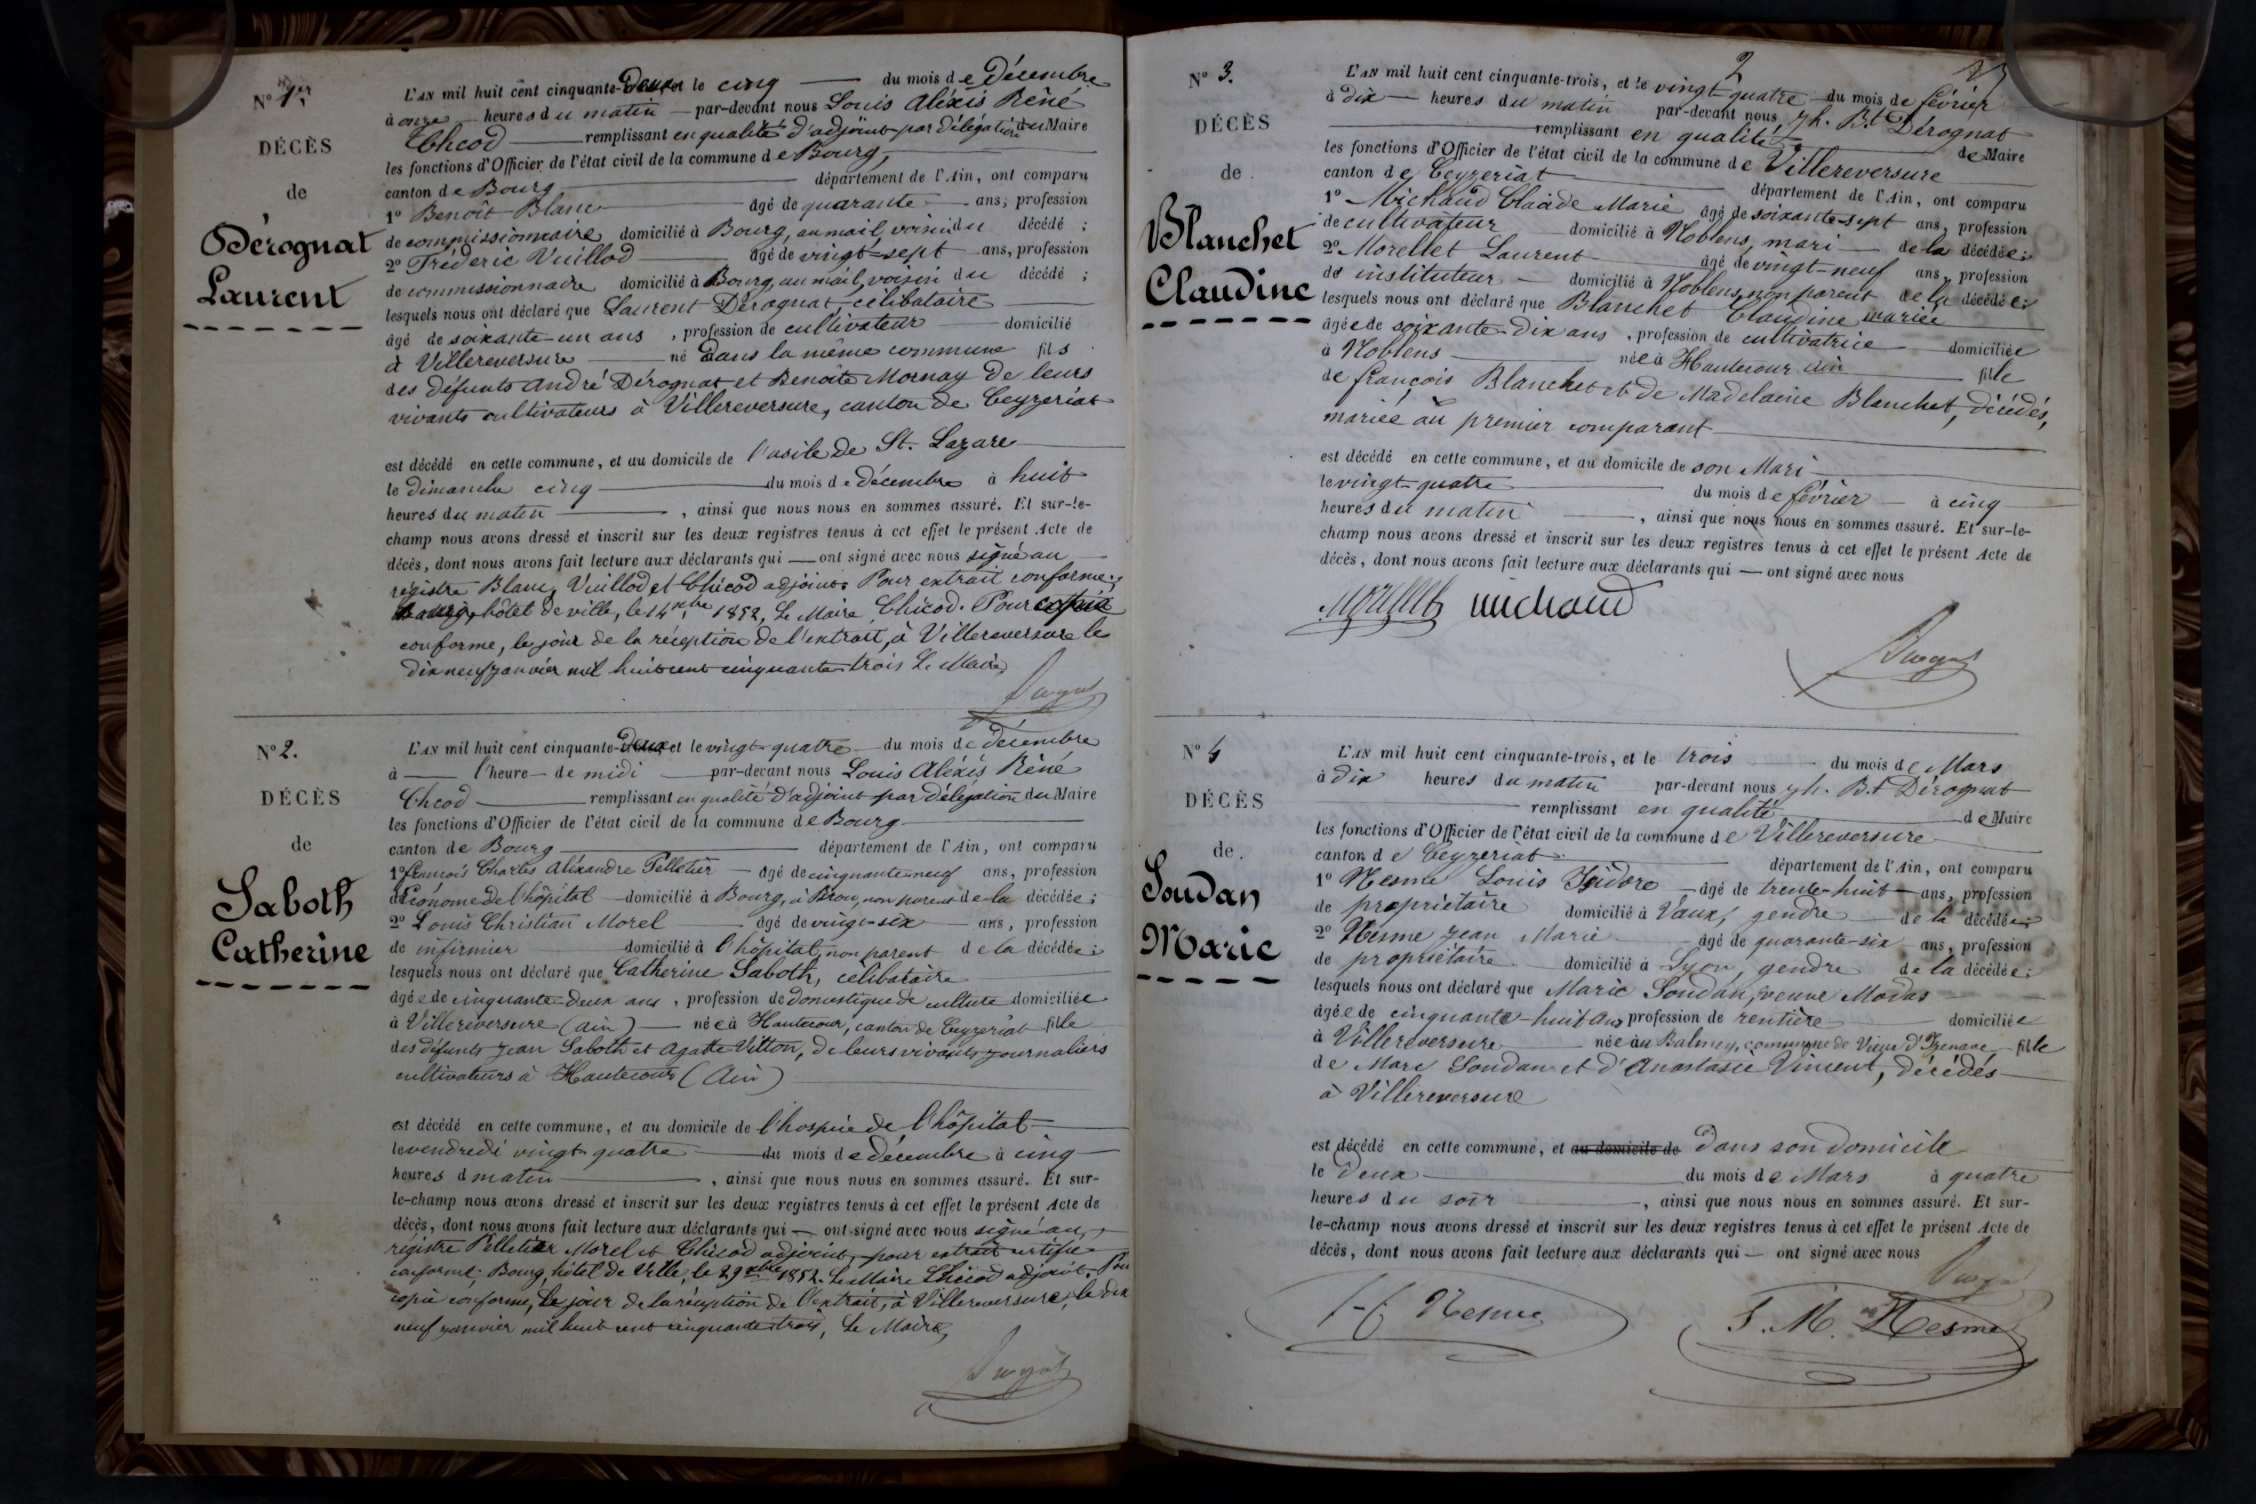 N° 1er
DÉCÈS
de
Dérognat
Laurent
L'AN mil huit cent cinquante-Deux et le cinq du mois de Décembre
à onze heures du matin par-devant nous Louis Aléxis Rèné
Chcod remplissant en qualité d'adjoint par délégation du Maire
les fonctions d'Officier de l'état civil de la commune de Bourg,
canton de Bourg département de l'Ain, ont comparu
1° Benoît Blanc âgé de quarante ans, profession
de commissionnaire domicilié à Bourg, au mail, voisin du décédé ;
2° Fréderic Vuillod âgé de vingt-sept ans, profession
de commissionnaire domicilié à Bourg, au mail, voisin du décédé ;
lesquels nous ont déclaré que Laurent Dérognat célibataire
âgé de soixante un ans, profession de cultivateur domicilié
à Villereversure né dans la même commune fils
des défunts André Dérognat et Benoite Mornay de leurs
vivants cultivateurs à Villereversure, canton de Ceyzeriat
est décédé en cette commune, et au domicile de l'asile de St. Lazare
le dimanche cinq du mois de décembre à huit
heures du matin, ainsi que nous nous en sommes assuré. Et sur-le-
champ nous avons dressé et inscrit sur les deux registres tenus à cet effet le présent Acte de
décès, dont nous avons fait lecture aux déclarants qui ont signé avec nous signé au
régistre Blanc, Vuillod et Chicod adjoint. Pour extrait conforme;
Bourg, hôtel de ville, le 14 xbre 1852, Le Maire Chicod. Pour copie
conforme, le jour de la réception de l'extrait, à Villereversure le
dix neuf janvier mil huit cent cinquante trois Le Maire,
N° 2.
DÉCÈS
de
Saboth
Catherine
L'AN mil huit cent cinquante-Deux et le vingt-quatre du mois de décembre
à l'heure de midi par-devant nous Louis Aléxis Rèné
Chcod remplissant en qualité d'adjoint par délégation du Maire
les fonctions d'Officier de l'état civil de la commune de Bourg
canton de Bourg département de l'Ain, ont comparu
1° françois Charles Aléxandre Pelletier âgé de cinquante neuf ans, profession
d'Économe de l'hôpital domicilié à Bourg, à Brou, non parent de la décédée ;
2° Louis Christian Morel âgé de vingt-six ans, profession
de infirmier domicilié à l'hôpital, non parent de la décédée ;
lesquels nous ont déclaré que Catherine Saboth, célibataire
âgée de cinquante-deux ans, profession de domestique de culture domiciliée
à Villereversure (Ain) née à Hautecour, canton de Ceyzeriat fille
des défunts Jean Saboth et Agathe Vitton, de leurs vivants journaliers
cultivateurs à Hautecour (Ain)
est décédé en cette commune, et au domicile de l'hospice de l'hôpital
le vendredi vingt-quatre du mois de décembre à cinq
heures d matin, ainsi que nous nous en sommes assuré. Et sur-
le-champ nous avons dressé et inscrit sur les deux registres tenus à cet effet le présent Acte de
décès, dont nous avons fait lecture aux déclarants qui ont signé avec nous signé au
régistre Pelletier Morel et Chicod adjoint, pour extrait certifié
conforme. Bourg, hôtel de Ville, le 29 xbre 1852. Le Maire Chicod adjoint. Pour
copie conforme, le jour de la réception de l'extrait, à Villereversure, le dix
neuf janvier mil huit cent cinquante trois, Le Maire,
2
N° 3.
DÉCÈS
de
Blanchet
Claudine
L'AN mil huit cent cinquante-trois, et le vingt quatre du mois de février
à dix heures du matin par-devant nous Jh. Bte Dérognat
remplissant en qualité de Maire
les fonctions d'Officier de l'état civil de la commune de Villereversure
canton de Ceyzeriat département de l'Ain, ont comparu
1° Michaud Claude Marie âgé de soixante-sept ans, profession
de cultivateur domicilié à Noblens, mari de la décédée ;
2° Morellet Laurent âgé de vingt-neuf ans, profession
de instituteur domicilié à Noblens, non parent de la décédée ;
lesquels nous ont déclaré que Blanchet Claudine mariée
âgée de soixante-dix ans, profession de cultivatrice domiciliée
à Noblens née à Hautecour Ain fille
de françois Blanchet et de Madelaine Blanchet, décédés,
mariée au premier comparant
est décédé en cette commune, et au domicile de son Mari
le vingt-quatre du mois de février à cinq
heures du matin, ainsi que nous nous en sommes assuré. Et sur-le-
champ nous avons dressé et inscrit sur les deux registres tenus à cet effet le présent Acte de
décès, dont nous avons fait lecture aux déclarants qui ont signé avec nous
Morellet michaud
N° 4
DÉCÈS
de
Soudan
Marie
L'AN mil huit cent cinquante-trois, et le trois du mois de Mars
à dix heures du matin par-devant nous Jh. Bt Dérognat
remplissant en qualité de Maire
les fonctions d'Officier de l'état civil de la commune de Villereversure
canton de Ceyzeriat département de l'Ain, ont comparu
1° Nesme Louis Isidore âgé de trente-huit ans, profession
de propriétaire domicilié à Vaux, gendre de la décédée ;
2° Nesme Jean Marie âgé de quarante-six ans, profession
de propriétaire domicilié à Lyon, gendre de la décédée ;
lesquels nous ont déclaré que Marie Soudan, veuve Modas
âgée de cinquante-huit ans profession de rentière domiciliée
à Villereversure née au Balmey, commune de Vieux d'Izenave fille
de Marc Soudan et d'Anastasie Vincent, décédés
à Villereversure
est décédé en cette commune, et au domicile de dans son domicile
le deux du mois de Mars à quatre
heures du soir, ainsi que nous nous en sommes assuré. Et sur-
le-champ nous avons dressé et inscrit sur les deux registres tenus à cet effet le présent Acte de
décès, dont nous avons fait lecture aux déclarants qui ont signé avec nous
Nesme J. M. Nesme